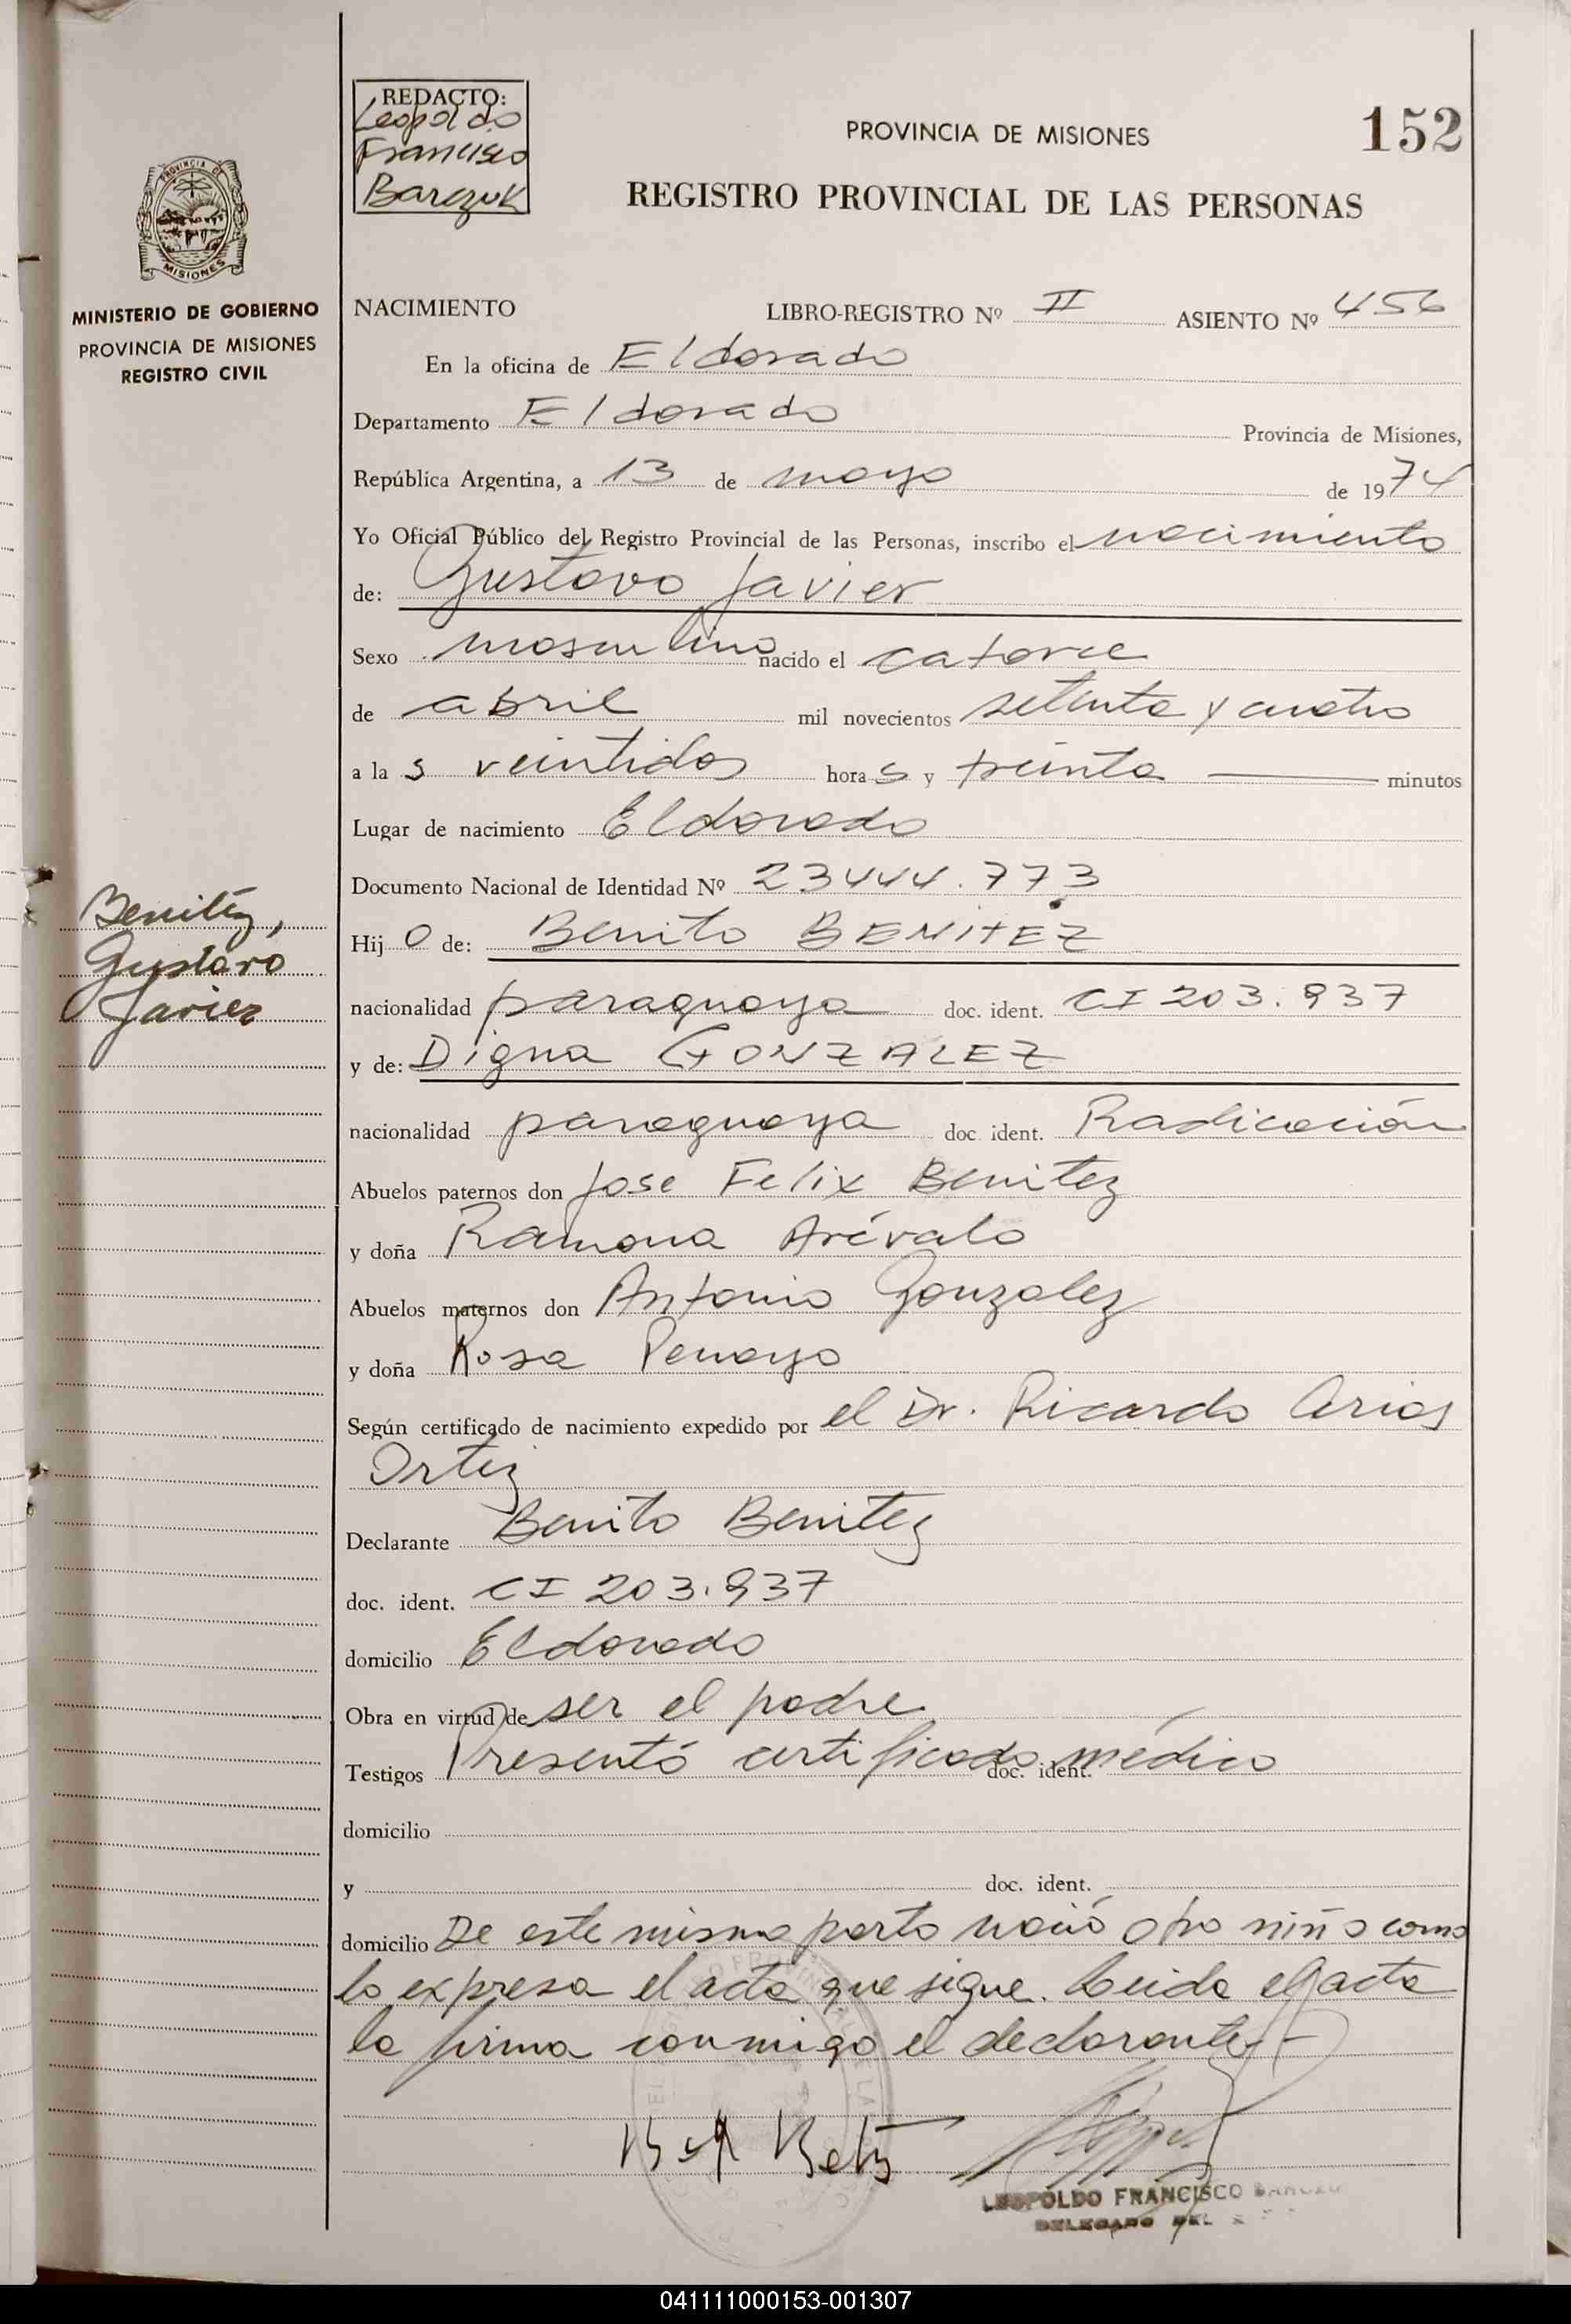 REDACTO:
Leopoldo
Francisco
Barczuk
PROVINCIA DE MISIONES
152
REGISTRO PROVINCIAL DE LAS PERSONAS
PROVINCIA DE
MISIONES
MINISTERIO DE GOBIERNO
PROVINCIA DE MISIONES
REGISTRO CIVIL
NACIMIENTO LIBRO-REGISTRO Nº II ASIENTO Nº 456
En la oficina de Eldorado
Departamento Eldorado Provincia de Misiones,
República Argentina, a 13 de mayo de 1974
Yo Oficial Público del Registro Provincial de las Personas, inscribo el nacimiento
de: Gustavo Javier
Sexo masculino nacido el catorce
de abril mil novecientos setenta y cuatro
a la s veintidos hora s y treinta minutos
Lugar de nacimiento Eldorado
Documento Nacional de Identidad Nº 23444.773
Benitez,
Gustavo
Javier
Hij o de: Benito BENITEZ
nacionalidad paraguaya doc. ident. CI 203.937
y de: Digna GONZALEZ
nacionalidad paraguaya doc. ident. Radicación
Abuelos paternos don Jose Felix Benitez
y doña Ramona Arévalo
Abuelos maternos don Antonio Gonzalez
y doña Rosa Penayo
Según certificado de nacimiento expedido por el Dr. Ricardo Arias
Ortiz
Declarante Benito Benitez
doc. ident. CI 203.937
domicilio Eldorado
Obra en virtud de ser el padre
Testigos Presentó certificado doc. ident. médico
domicilio
y doc. ident.
domicilio De este mismo parto nació otro niño como
lo expresa el acta que sigue. Leida el acta
la firma conmigo el declarante.-
LEOPOLDO FRANCISCO
DELEGADO DEL
041111000153-001307